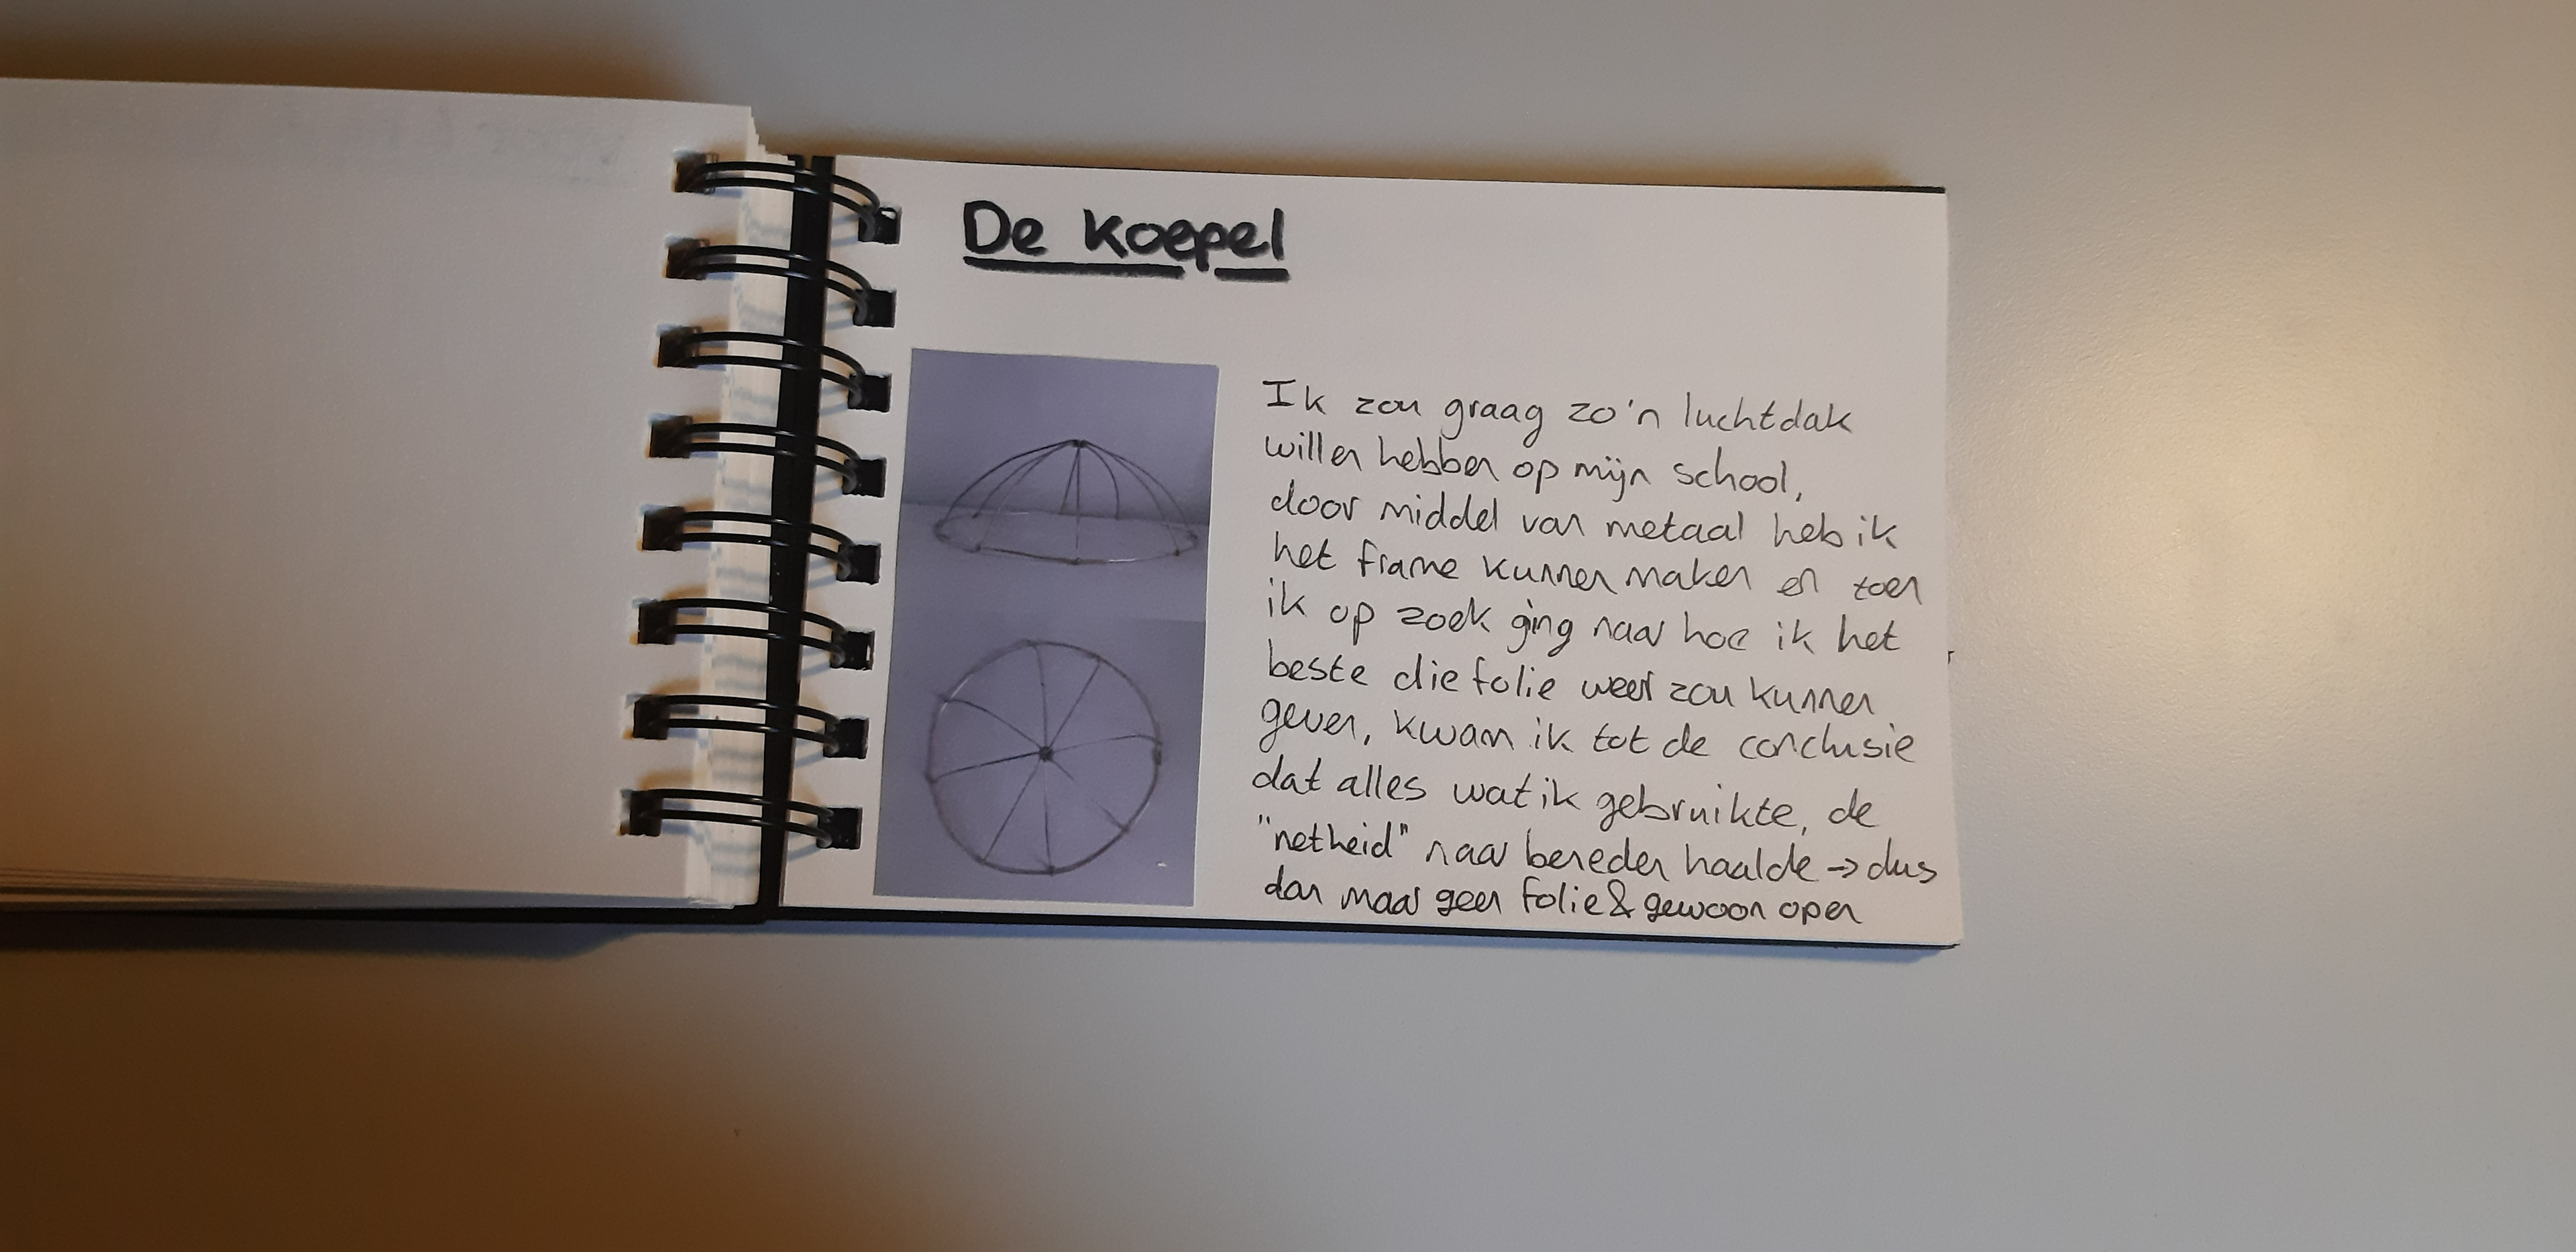 De Koepel
Ik zou graag zo'n luchtdak
willen hebben op mijn school,
door middel van metaal heb ik
het frame kunnen maken en toen
ik op zoek ging naar hoe ik het
beste die folie weer zou kunnen
geven, kwam ik tot de conclusie
dat alles wat ik gebruikte, de
"netheid" naar beneden haalde → dus
dan maar geen folie & gewoon open